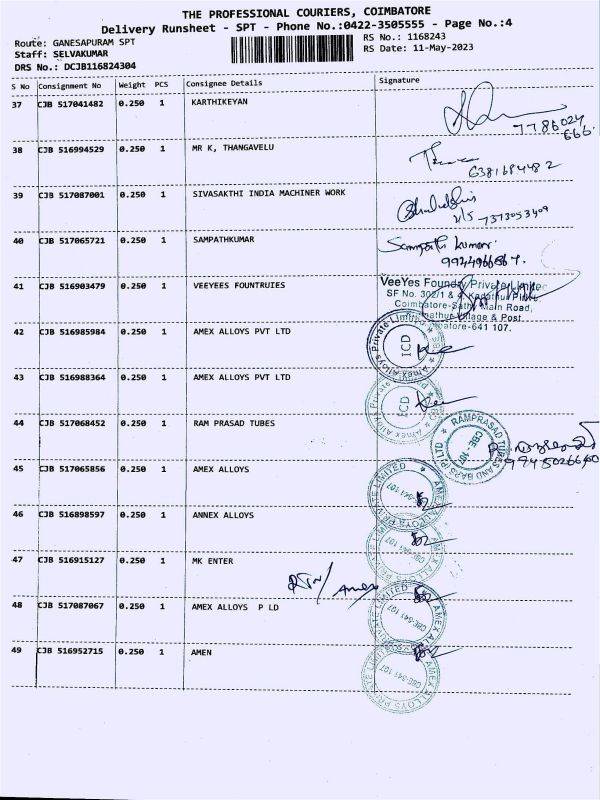 THE PROFESSIONAL COURIERS, COIMBATORE
Delivery Runsheet - SPT - Phone No.:0422-3505555 - Page No.:4
Route: GANESAPURAM SPT
RS No.: 1168243
Staff: SELVAKUMAR
RS Date: 11-May-2023
DRS No.: DCJB116824304
S No Consignment No Weight PCS Consignee Details Signature
37 CJB 517041482 0.250 1 KARTHIKEYAN
7786024
666
38 CJB 516994529 0.250 1 MR K, THANGAVELU
6381684482
39 CJB 517087001 0.250 1 SIVASAKTHI INDIA MACHINER WORK
7373053409
40 CJB 517065721 0.250 1 SAMPATHKUMAR
Sampath Kumar
9944966867.
41 CJB 516903479 0.250 1 VEEYEES FOUNTRUIES
VeeYes Foundry Private Limited
SF No. 302/1 & Kadathur Pirivu,
Coimbatore-Sathy Main Road,
Village & Post,
Coimbatore-641 107.
42 CJB 516985984 0.250 1 AMEX ALLOYS PVT LTD
Amex Alloys Private Limited
ICD
43 CJB 516988364 0.250 1 AMEX ALLOYS PVT LTD
Amex Alloys Private
ICD
44 CJB 517068452 0.250 1 RAM PRASAD TUBES
RAMPRASAD TUBES AND BARS (P) LTD
CBE-18
9945026640
45 CJB 517065856 0.250 1 AMEX ALLOYS
AMEX ALLOYS PRIVATE LIMITED
CBE-641 107
46 CJB 516898597 0.250 1 ANNEX ALLOYS
47 CJB 516915127 0.250 1 MK ENTER
Amex
48 CJB 517087067 0.250 1 AMEX ALLOYS P LD
CBE-641 107
49 CJB 516952715 0.250 1 AMEN
AMEX ALLOYS PRIVATE LIMITED
CBE-641 107